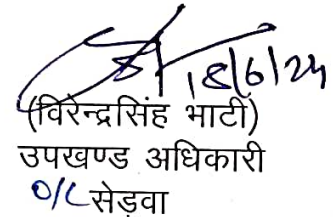 18/6/24
(विरेन्द्रसिंह भाटी)
उपखण्ड अधिकारी
O/C सेड़वा